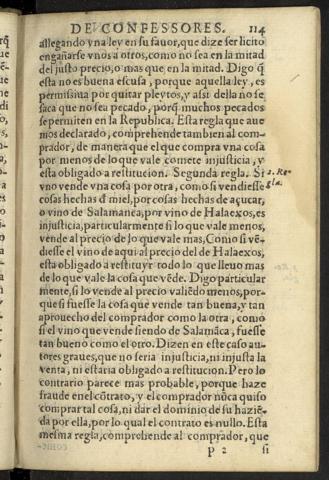 DE CONFESSORES. 114
allegando vna ley en su fauor, que dize ser licito
engañarse vnos a otros, como no sea en la mitad
del justo precio, o mas que en la mitad. Digo q̃
esta no es buena escusa, porque aquella ley, es
permissiua por quitar pleytos, y assi della no se
saca que no sea pecado, porq̃ muchos pecados
se permiten en la Republica. Esta regla que aue
mos declarado, comprehende tambien al com-
prador, de manera que el que compra vna cosa
por menos de lo que vale comete injusticia, y
esta obligado a restitucion. Segunda regla. Si
2. Re-
gla.
vno vende vna cosa por otra, como si vendiesse
cosas hechas d̃ miel, por cosas hechas de açucar,
o vino de Salamanca, por vino de Halaexos, es
injusticia, particularmente si lo que vale menos,
vende al precio de lo que vale mas, Como si vẽ-
diesse el vino de aqui al precio del de Halaexos,
esta obligado a restituyr todo lo que lleuo mas
de lo que vale la cosa que vẽde. Digo particular
mente, si lo vende al precio valiẽdo menos, por-
que si fuesse la cosa que vende tan buena, y tan
aprouecho del comprador como la otra, como
si el vino que vende siendo de Salamãca, fuesse
tan bueno como el otro. Dizen en este caso au-
tores graues, que no seria injusticia, ni injusta la
venta, ni estaria obligado a restitucion. Pero lo
contrario parece mas probable, porque haze
fraude en el cõtrato, y el comprador nũca quiso
comprar tal cosa, ni dar el dominio de su haziẽ-
da por ella, por lo qual el contrato es nullo. Esta
mesma regla, comprehende al comprador, que
P 2 si